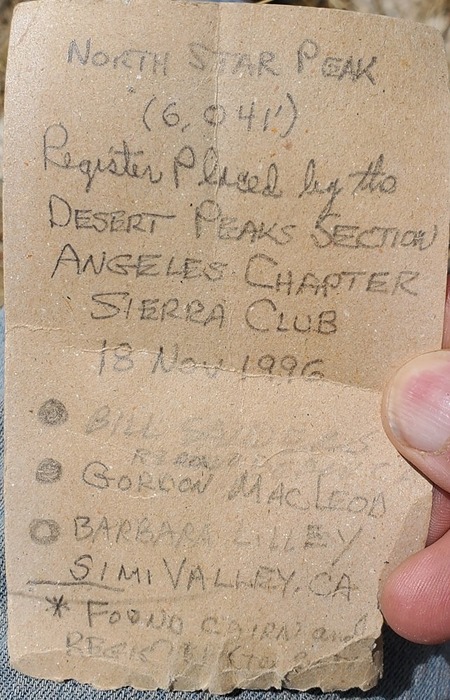 NORTH STAR PEAK
(6,041')
Register Placed by the
DESERT PEAKS SECTION
ANGELES CHAPTER
SIERRA CLUB
18 NOV 1996
BILL
GORDON MACLEOD
BARBARA LILLEY
SIMI VALLEY, CA
* FOUND CAIRN and